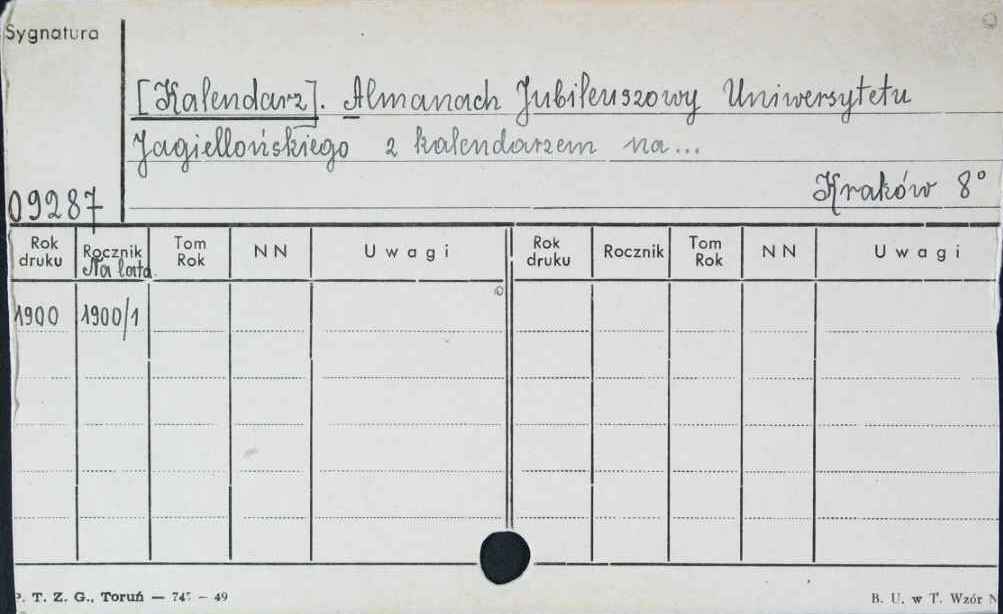 Sygnatura
[Kalendarz]. Almanach Jubileuszowy Uniwersytetu
Jagiellońskiego z kalendarzem na...
Kraków 8°
09287
Rok druku Rocznik Tom Rok NN Uwagi Rok druku Rocznik Tom Rok NN Uwagi
Na lata
1900 1900/1
P. T. Z. G., Toruń — 747 – 49 B. U. w T. Wzór N